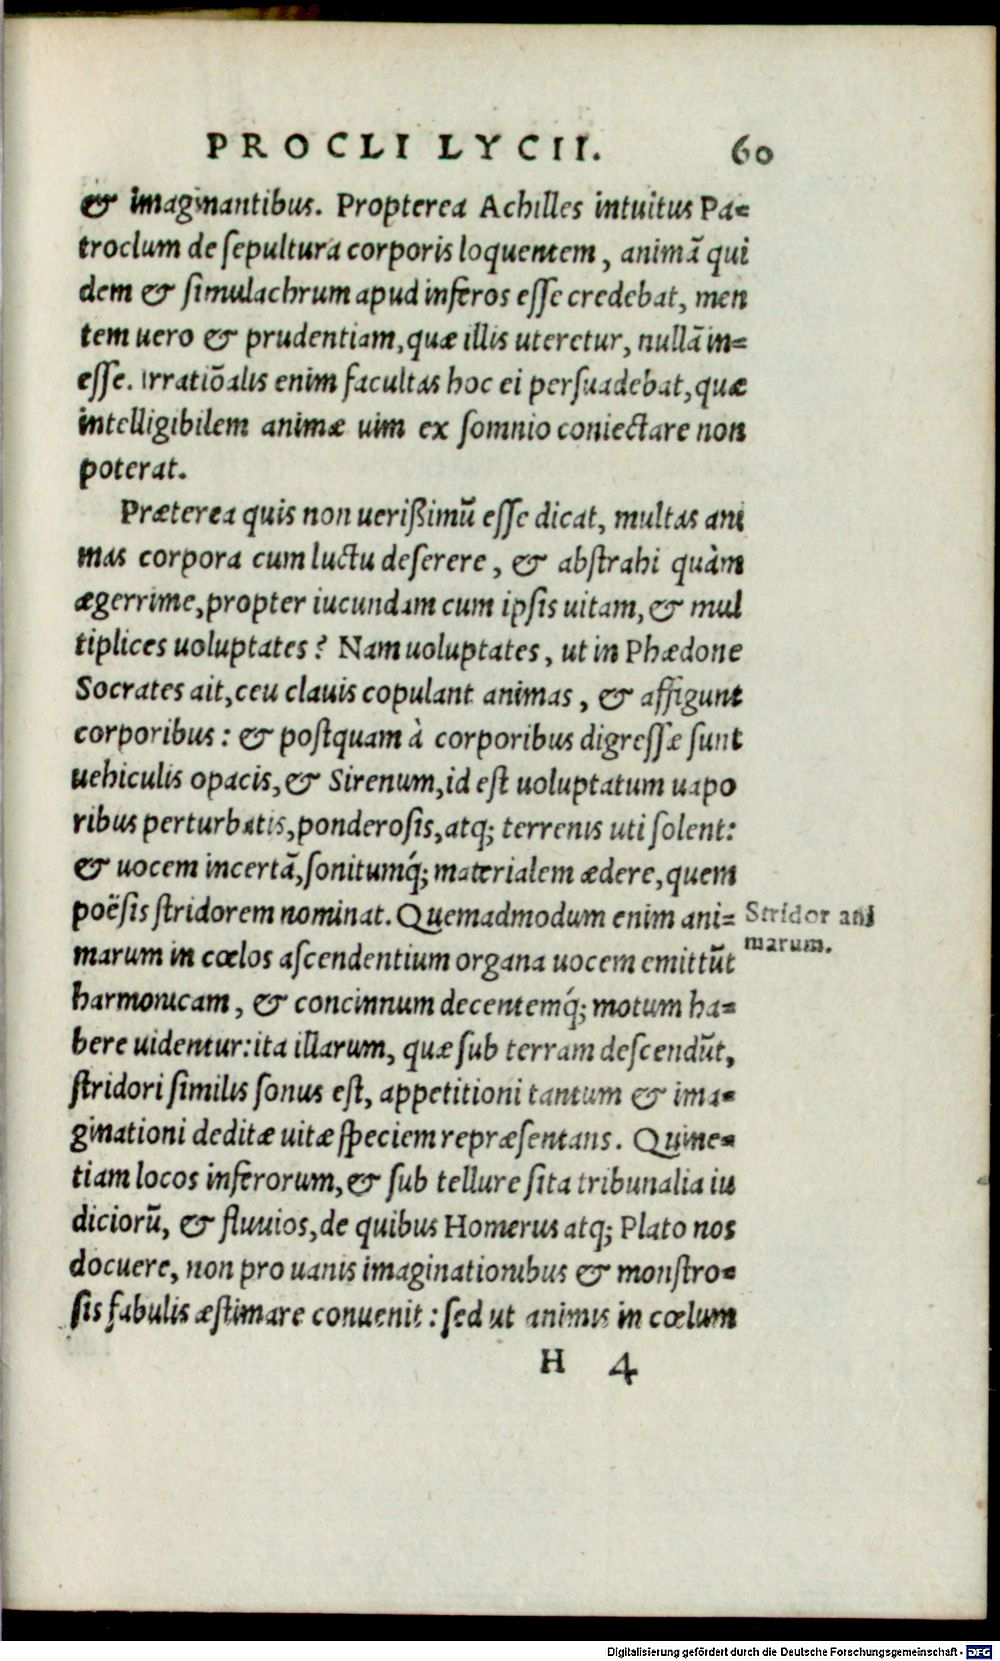 PROCLI LYCII. 60
& imaginantibus. Propterea Achilles intuitus Pa=
troclum de sepultura corporis loquentem, animā qui
dem & simulachrum apud inferos esse credebat, men
tem uero & prudentiam, quæ illis uteretur, nullā in=
esse. Irratiōalis enim facultas hoc ei persuadebat, quæ
intelligibilem animæ uim ex somnio coniectare non
poterat.
Præterea quis non uerißimū esse dicat, multas ani
mas corpora cum luctu deserere, & abstrahi quàm
ægerrime, propter iucundam cum ipsis uitam, & mul
tiplices uoluptates? Nam uoluptates, ut in Phædone
Socrates ait, ceu clauis copulant animas, & affigunt
corporibus: & postquam à corporibus digressæ sunt
uehiculis opacis, & Sirenum, id est uoluptatum uapo
ribus perturbatis, ponderosis, atq; terrenis uti solent:
& uocem incertā, sonitumq́; materialem ædere, quem
poësis stridorem nominat. Quemadmodum enim ani=
Stridor ani
marum.
marum in cœlos ascendentium organa uocem emittūt
harmonicam, & concinnum decentemq́; motum ha=
bere uidentur: ita illarum, quæ sub terram descendūt,
stridori similis sonus est, appetitioni tantum & ima=
ginationi deditæ uitæ speciem repræsentans. Quine=
tiam locos inferorum, & sub tellure sita tribunalia iu
diciorū, & fluuios, de quibus Homerus atq; Plato nos
docuere, non pro uanis imaginationibus & monstro=
sis fabulis æstimare conuenit: sed ut animis in cœlum
H 4
Digitalisierung gefördert durch die Deutsche Forschungsgemeinschaft - DFG